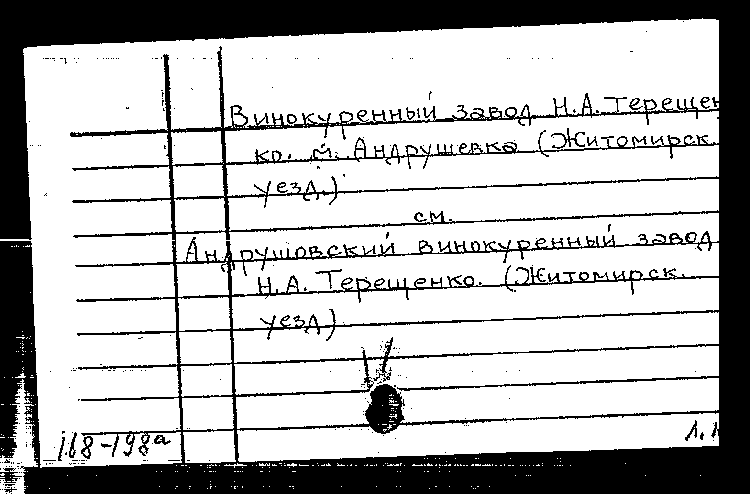 Винокуренный завод Н.А. Терещен
ко. м. Андрушевка (Житомирск.
уезд.)
см.
Андрушовский винокуренный завод
Н.А. Терещенко. (Житомирск.
уезд)
168-198а